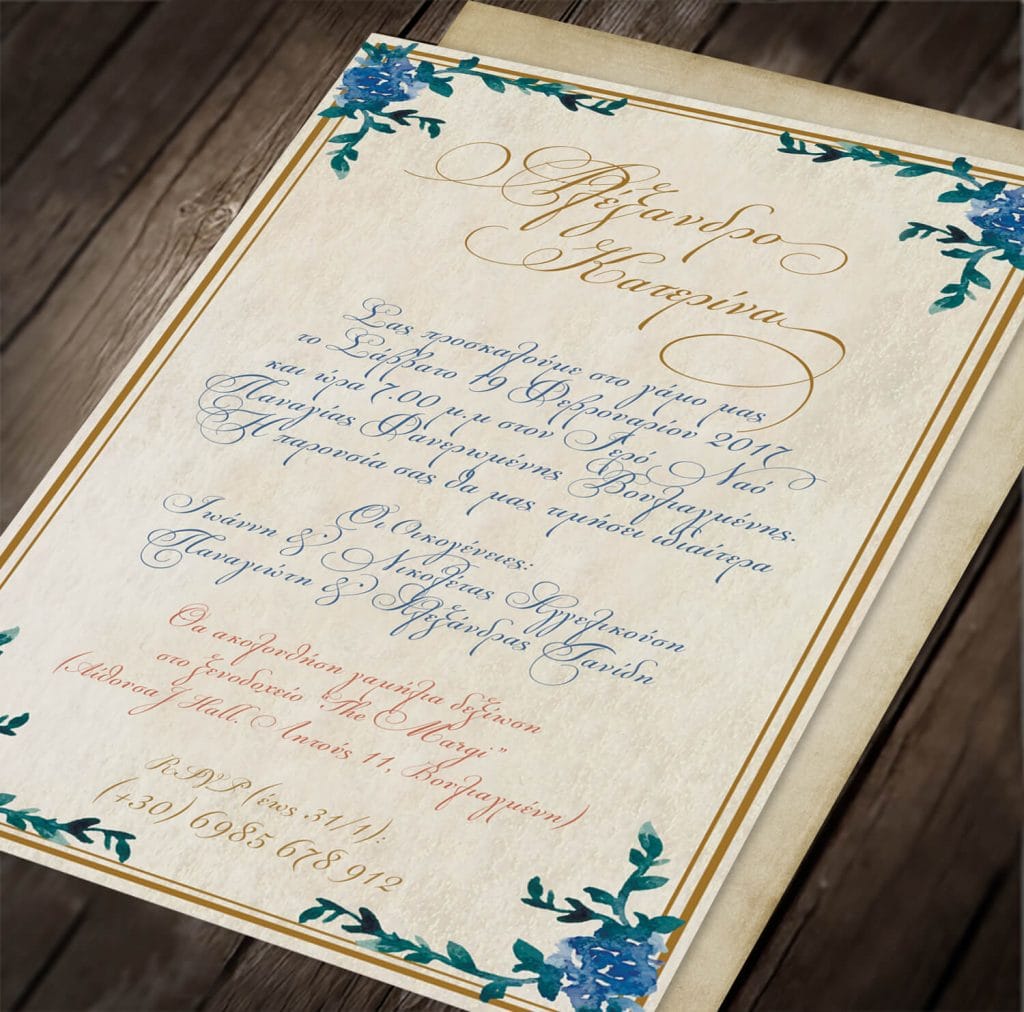 Αλέξανδρο
Κατερίνα
Σας προσκαλούμε στο γάμο μας
το Σάββατο 19 Φεβρουαρίου 2017
και ώρα 7.00 μ.μ στον Ιερό Ναό
Παναγίας Φανερωμένης Βουλιαγμένης.
Η παρουσία σας θα μας τιμήσει ιδιαίτερα
Οι Οικογένειες:
Ιωάννη & Νικολέτας Αγγελικούση
Παναγιώτη & Αλεξάνδρας Πανίδη
Θα ακολουθήση γαμήλια δεξίωση
στο ξενοδοχείο "The Margi"
(Αίθουσα J Hall, Λητούς 11, Βουλιαγμένη)
RSVP (έως 31/1):
(+30) 6985 678 912